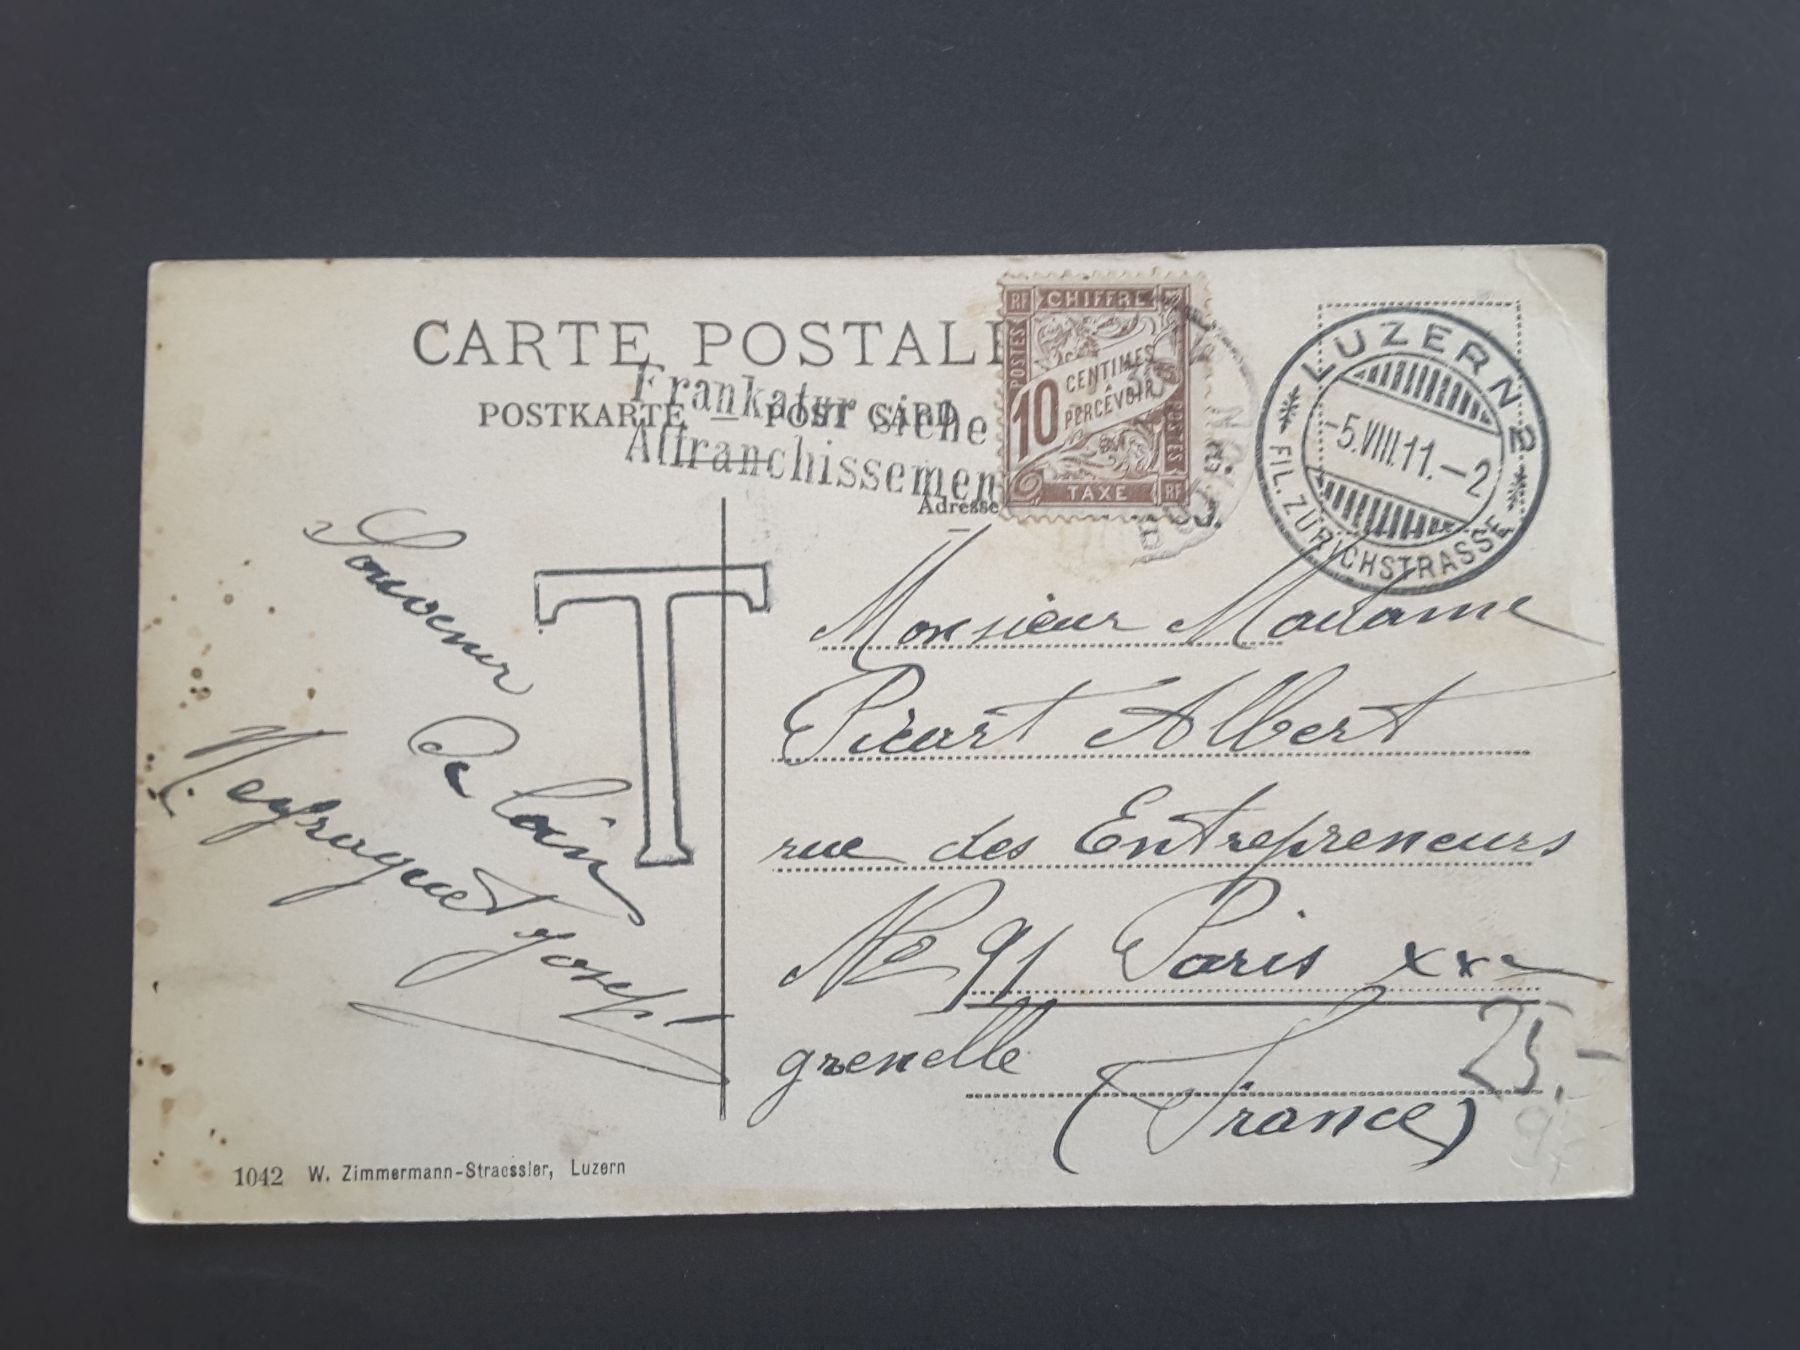 CARTE POSTALE
POSTKARTE — POST CARD
Frankatur siehe
Affranchissement
Adresse
RF CHIFFRE
POSTES
10 CENTIMES
À
PERCEVOIR
POSTES
TAXE RF
LUZERN 2
-5.VIII.11.-2
FIL. ZÜRICHSTRASSE
T
Souvenir
De loin
Neyroquet Josep
Monsieur Madame
Picart Albert
rue des Entrepreneurs
No 91 Paris xxe
grenelle
(France)
25.-
1042 W. Zimmermann-Straessler, Luzern